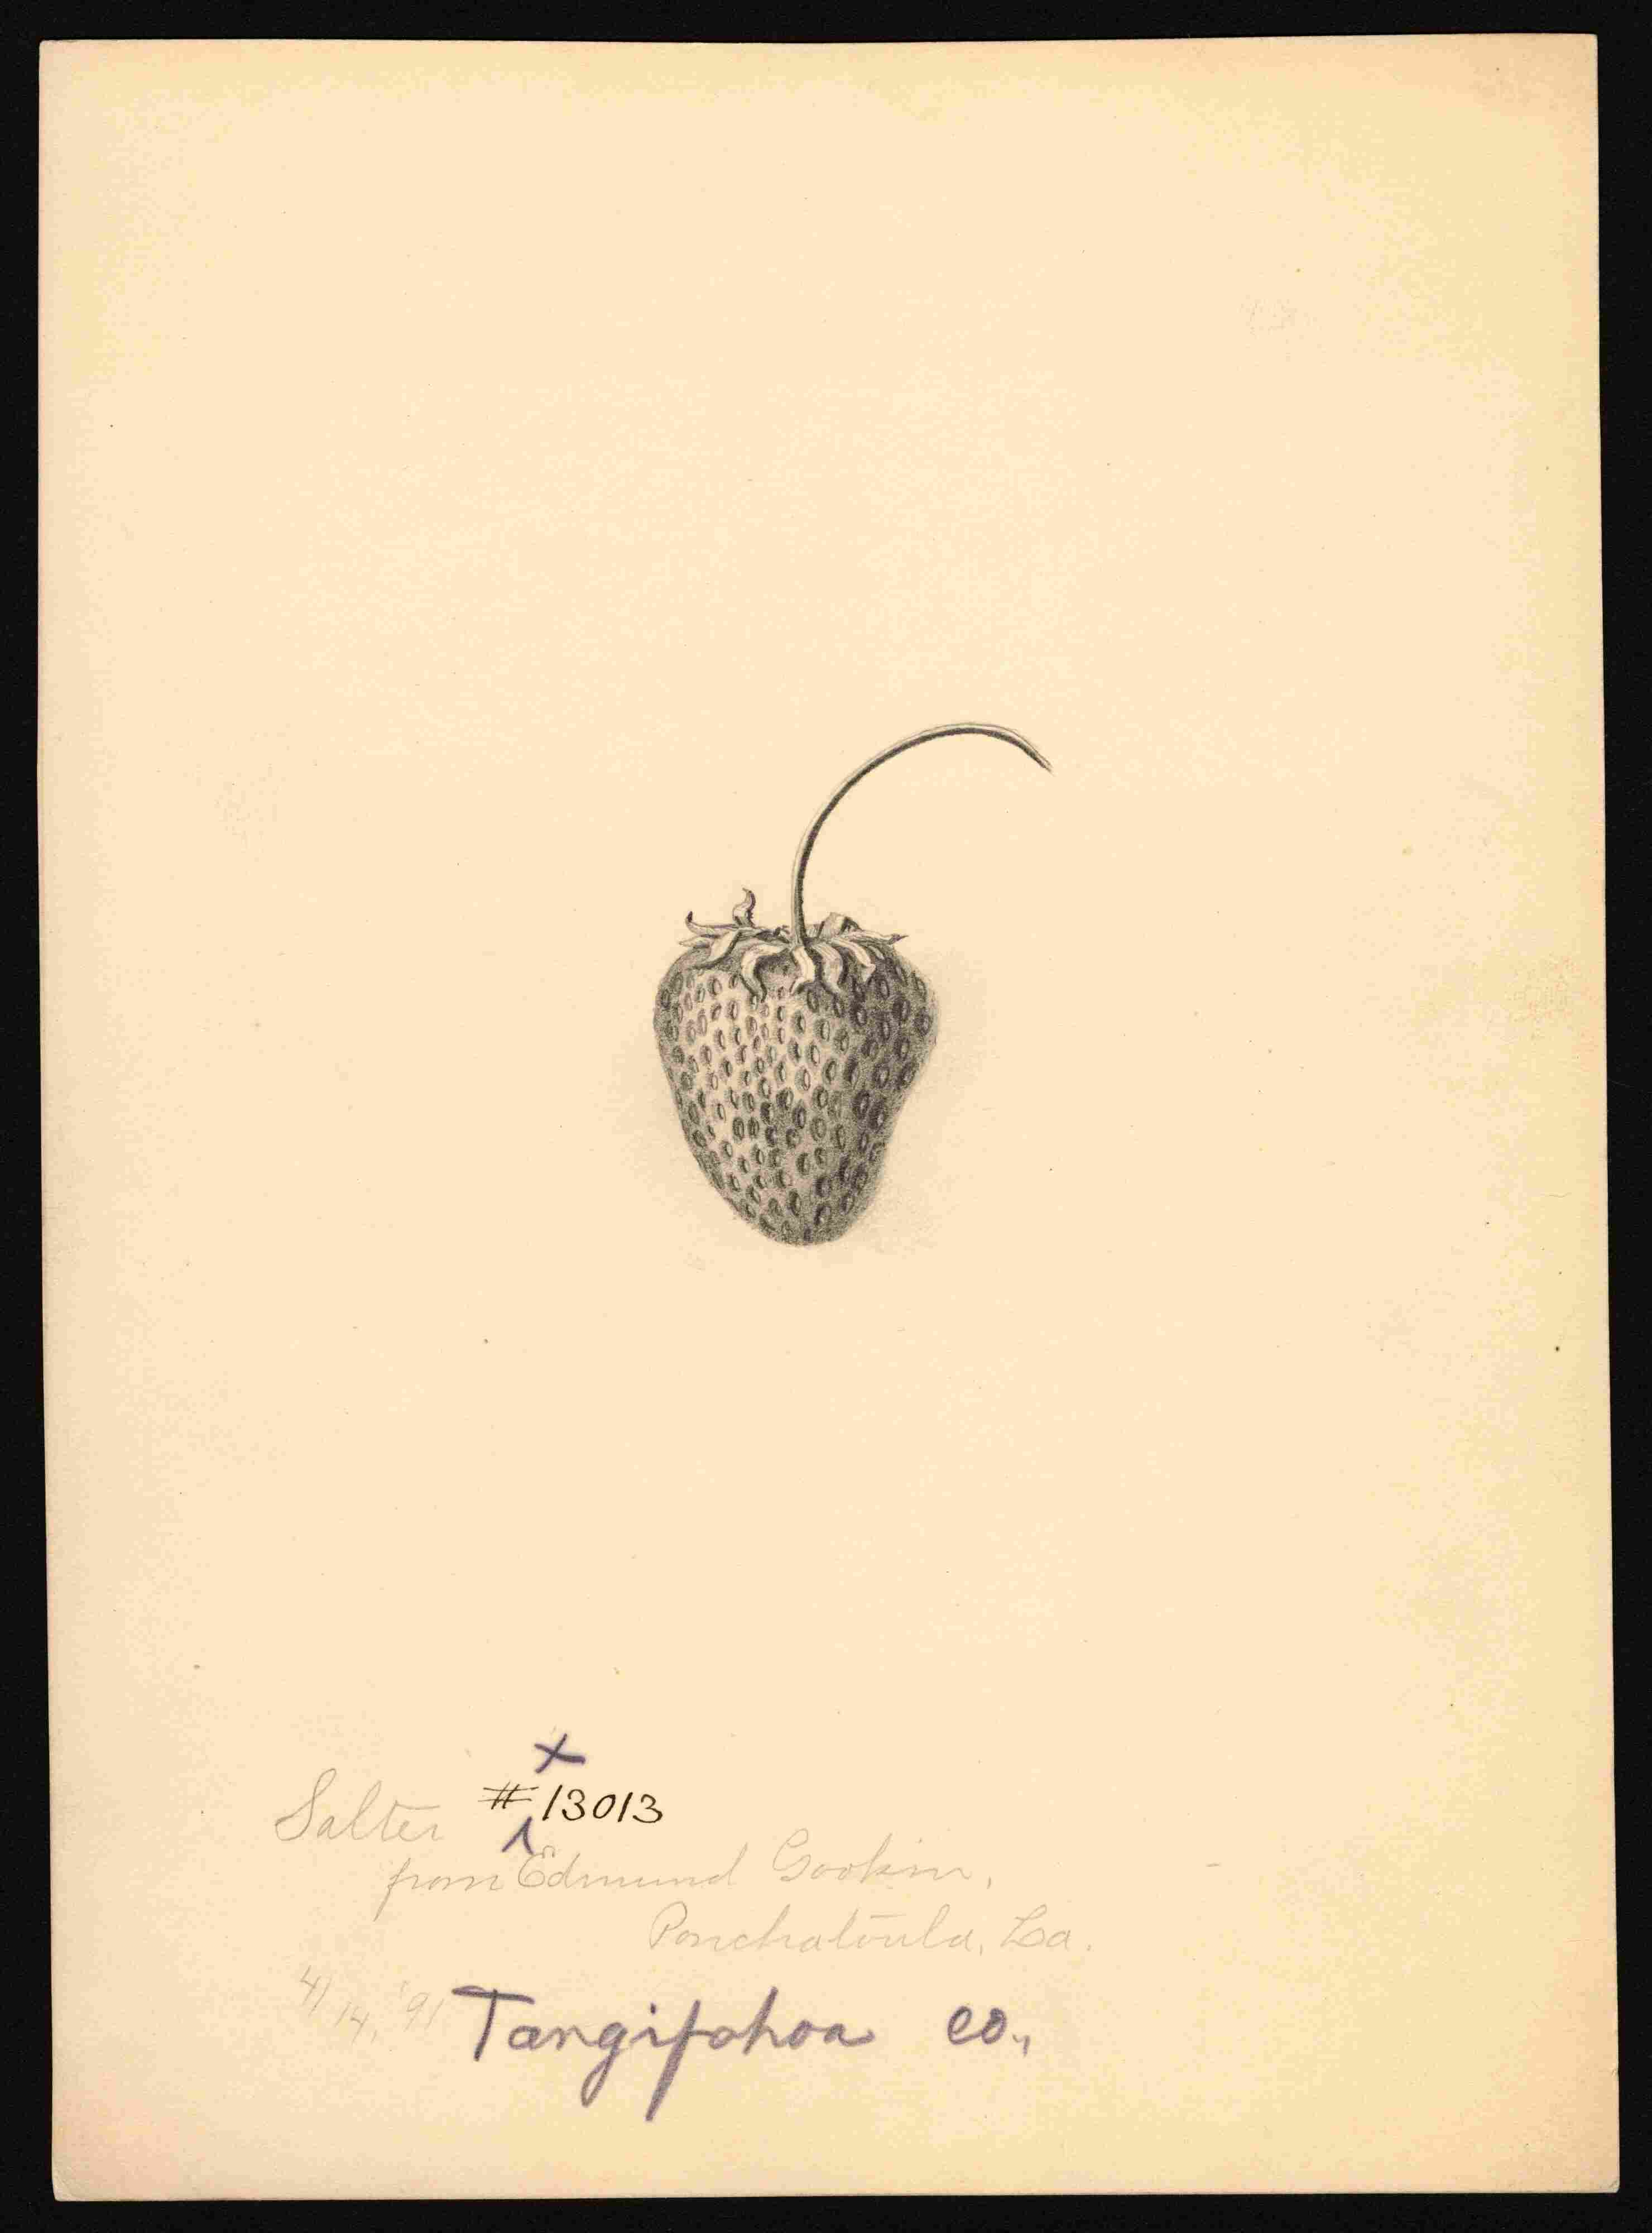 x
Salter #13013
from Edmund Gookin,
Ponchatoula, La.
4/14, '91
Tangipohoa co.,